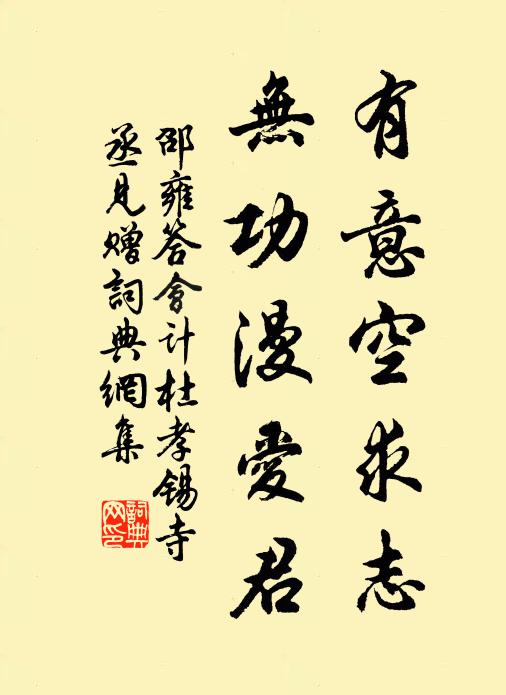 有意空求志
無功漫愛君
邵雍答會计杜孝錫寺
丞見贈詞典網集
詞典
网印